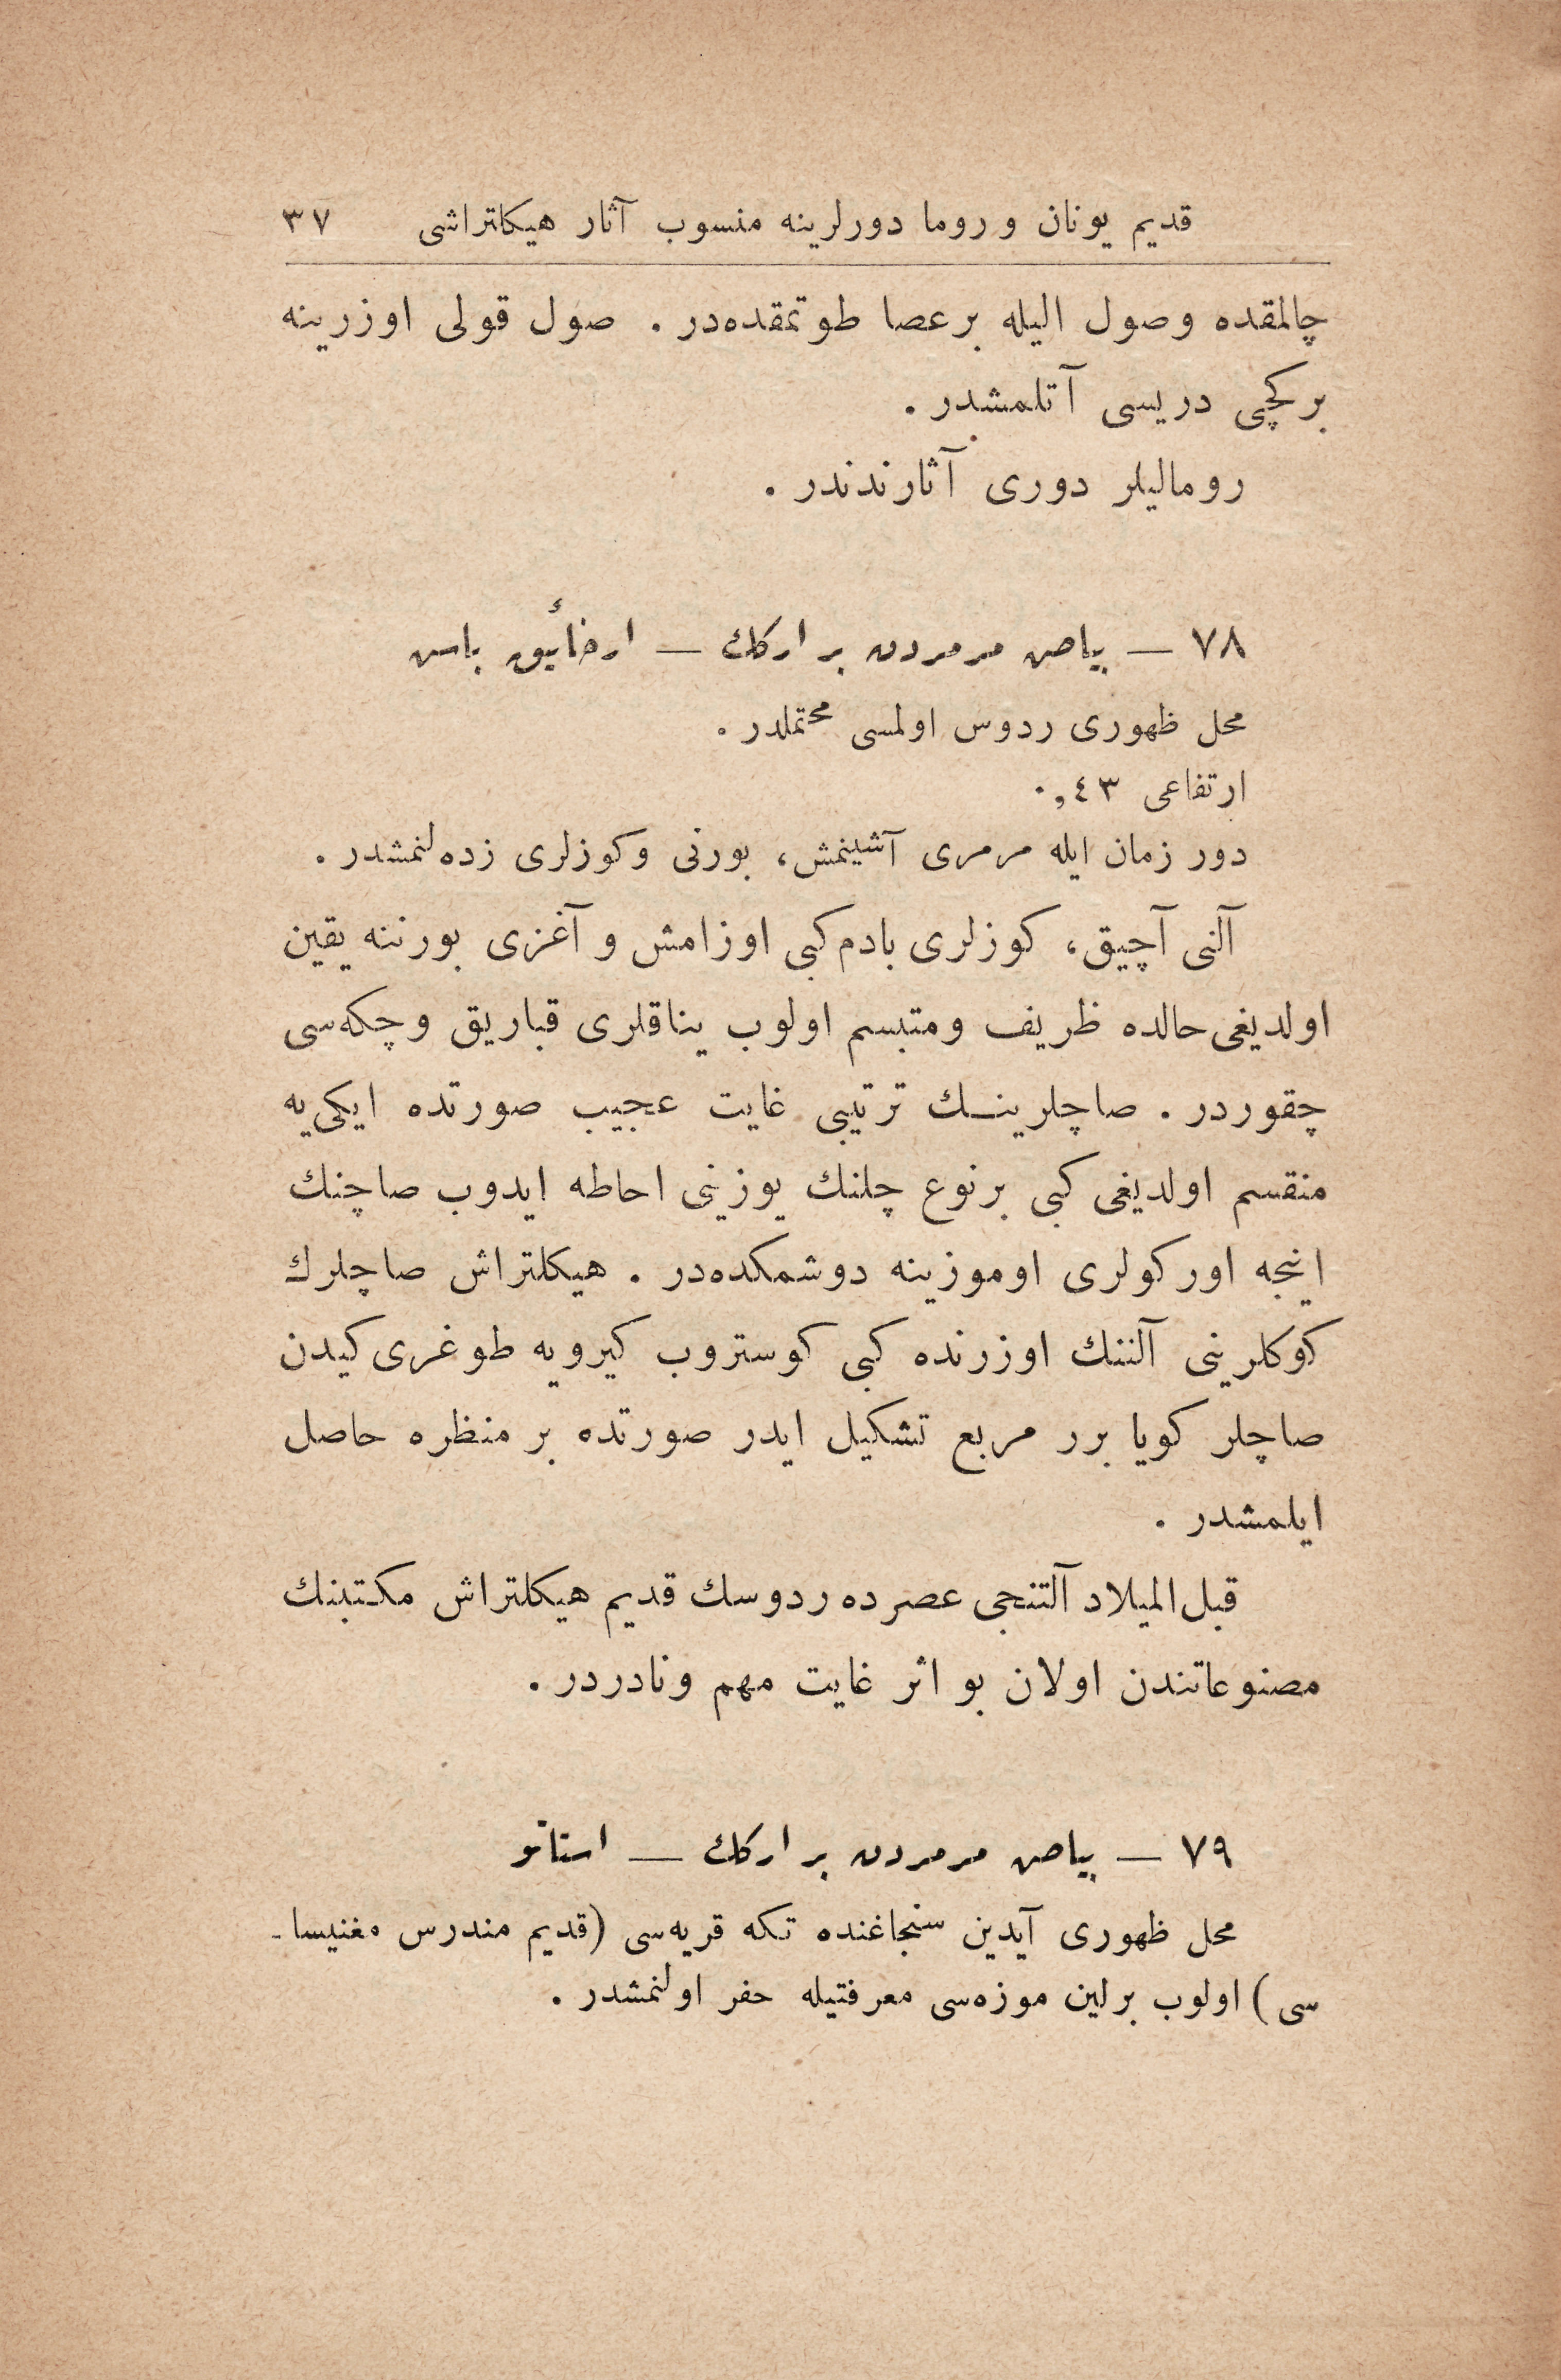 قديم يونان و روما دورلرينه منسوب آثار هيكلتراشى ٣٧
چالمقده وصول اليله برعصا طوتمقده‌در . صول قولى اوزرينه
بركچى دريسى آتلمشدر .
روماليلر دورى آثارندندر .
٧٨ — بياض مرمردن بر اركك — ارخائيق باش
محل ظهورى ردوس اولمسى محتملدر .
ارتفاعى ٠,٤٣
دور زمان ايله مرمرى آشينمش، بورنى وكوزلرى زده‌لنمشدر .
آلنى آچيق، كوزلرى بادم‌كبى اوزامش و آغزى بورننه يقين
اولديغى حالده ظريف ومتبسم اولوب يناقلرى قباريق وچكه‌سى
چقوردر . صاچلرينك ترتيبى غايت عجيب صورتده ايكى‌يه
منقسم اولديغى كبى برنوع چلنك يوزينى احاطه ايدوب صاچنك
اينجه اوركولرى اوموزينه دوشمكده‌در . هيكلتراش صاچلرك
كوكلرينى آلننك اوزرنده كبى كوستروب كيرويه طوغرى كيدن
صاچلر كويا برر مربع تشكيل ايدر صورتده بر منظره حاصل
ايلمشدر .
قبل‌الميلاد آلتنجى عصرده ردوسك قديم هيكلتراش مكتبنك
مصنوعاتندن اولان بو اثر غايت مهم ونادردر .
٧٩ — بياض مرمردن بر اركك — استاتو
محل ظهورى آيدين سنجاغنده تكه قريه‌سى (قديم مندرس مغنيسا-
سى) اولوب برلين موزه‌سى معرفتيله حفر اولنمشدر .